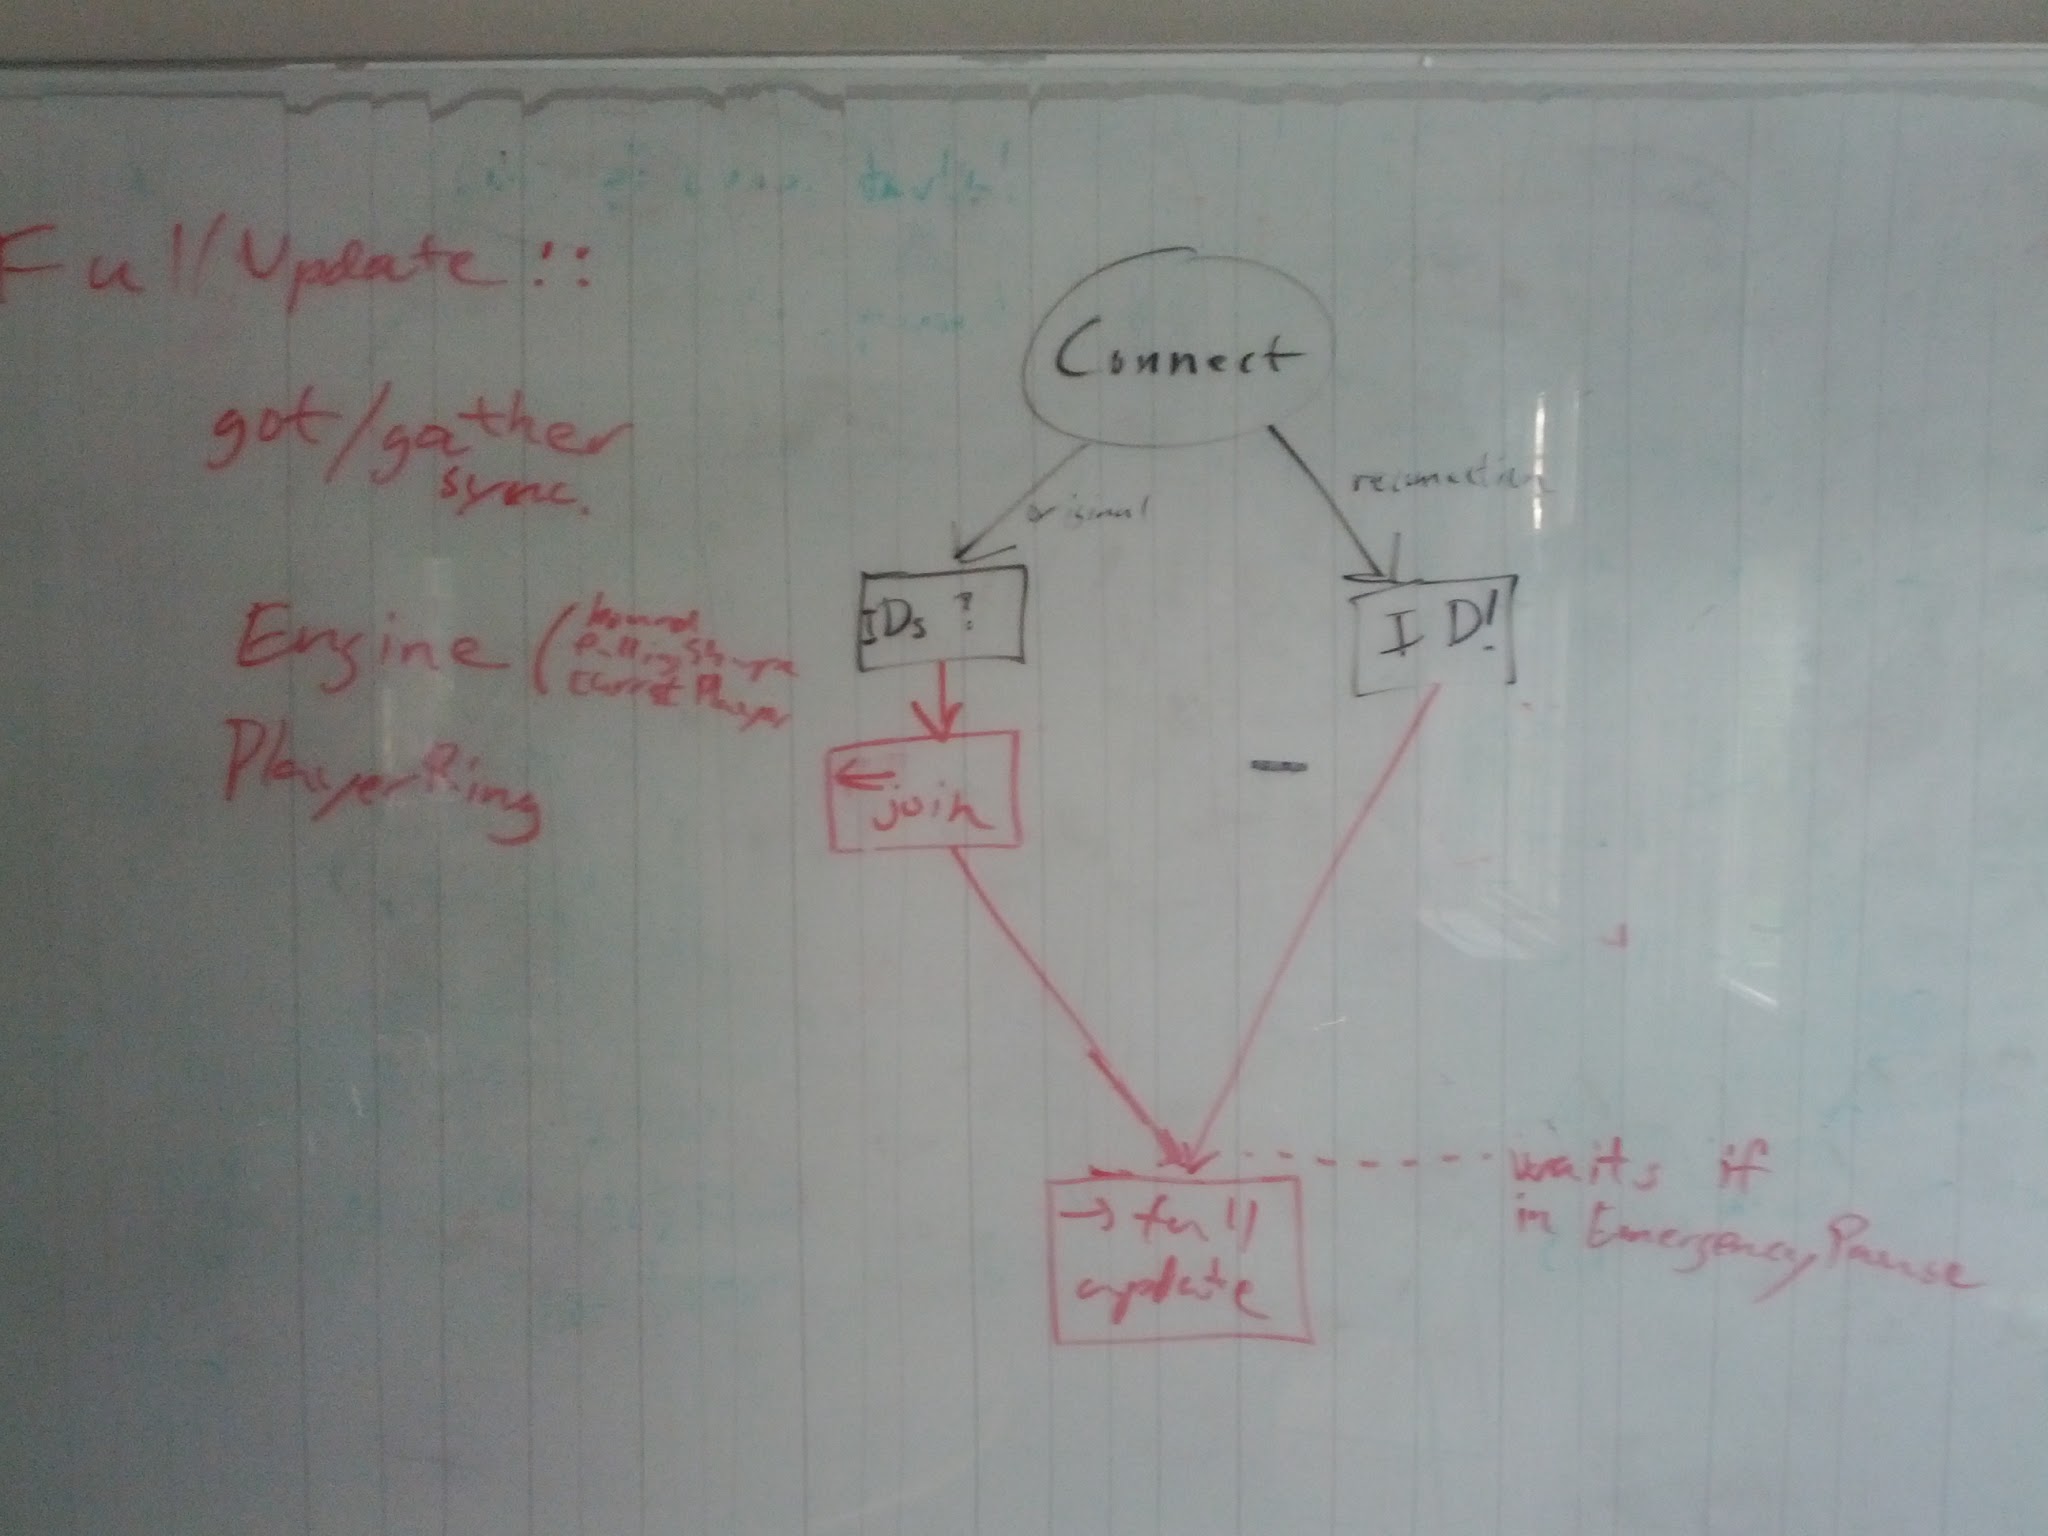 Full/Update ::
got/gather
sync.
Engine (
board
fallingShape
currentPlayer
PlayerRing
Connect
original
reconnection
IDs ?
ID!
← join
→ full
update
waits if
in EmergencyPause